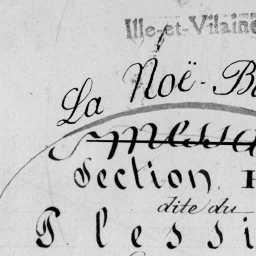 Ille-et-Vilaine
La Noë-B
Section
dite du
Plessi